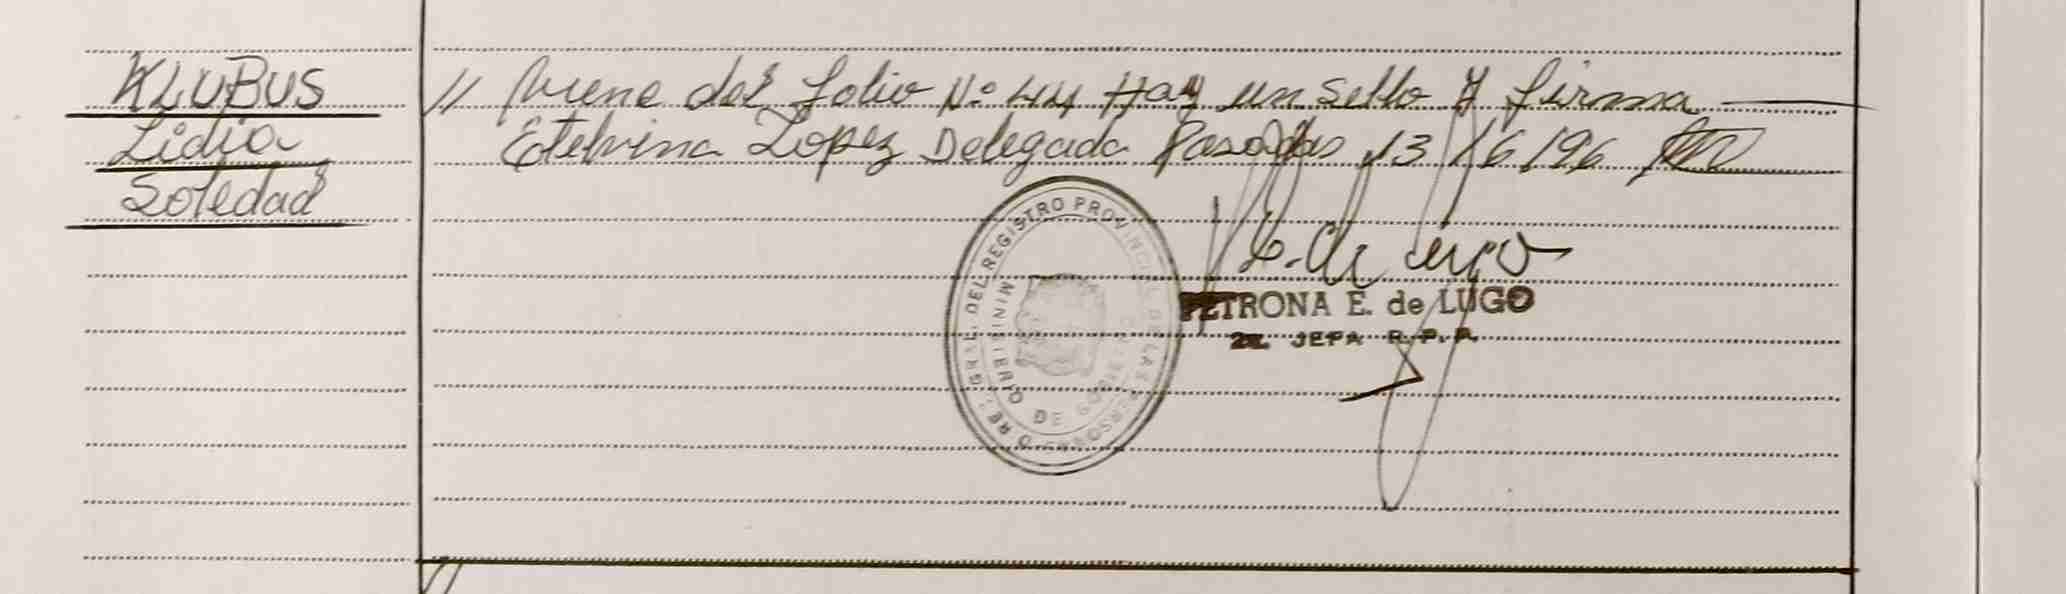 KLUBUS
Lidia
Soledad
// Viene del folio Nº 44 Hay un sello y firma
Etelvina Lopez Delegada Posadas 13/6/96
DEL REGISTRO PROVINCIAL DE LAS PERSONAS
MINISTERIO DE GOBIERNO
PETRONA E. de LUGO
JEFA R.P.P.
//